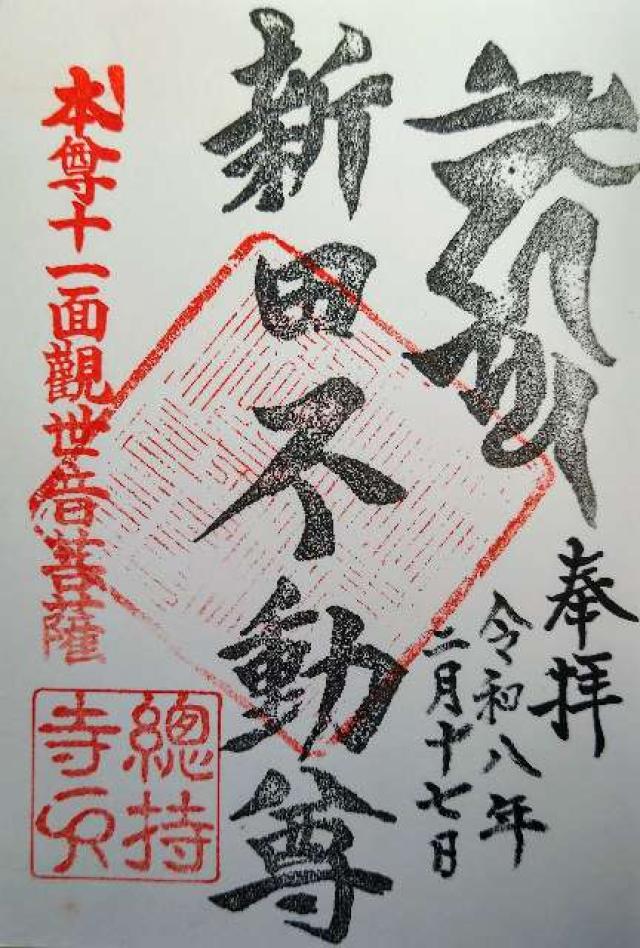 奉拝
令和八年
二月十七日
新田不動尊
本尊十一面觀世音菩薩
總持
寺